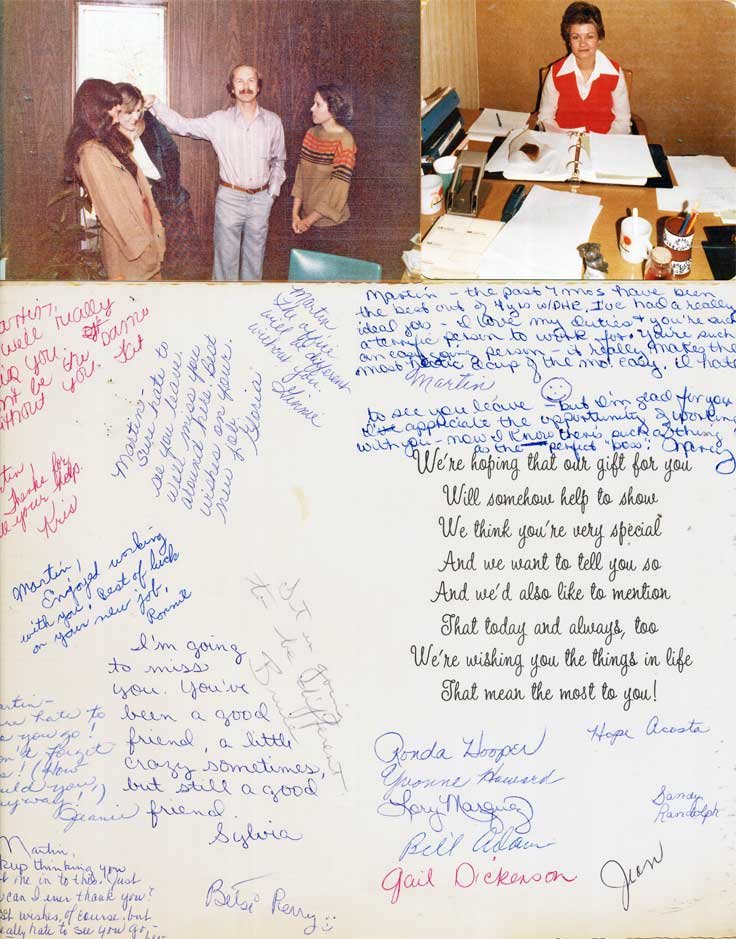 Well really
you
be the same
without you. Kit
Martin -
Sure hate to
see you leave.
Will miss you
around here. Best
wishes on your
new job.
Gloria
Martin
The office
will be different
without you.
Martin - the past 4 mos have been
the best out of 4 yrs w/DHR. I've had a really
ideal job - I love my duties & you're such
a terrific person to work for. You're such
an easy going person - it really makes the
most hectic day of the mo. easy. I'll hate
Martin
to see you leave - but I'm glad for you
I've appreciate the opportunity of working
with you - now I know there's such a thing
as the "perfect" boss! Nancy
We're hoping that our gift for you
Will somehow help to show
We think you're very special
And we want to tell you so
And we'd also like to mention
That today and always, too
We're wishing you the things in life
That mean the most to you!
Thanks for
your help.
Kris
Martin!
Enjoyed working
with you! Best of luck
on your new job,
Ronnie
It is going
to be different
I'm going
to miss
you. You've
been a good
friend, a little
crazy sometimes,
but still a good
friend.
Sylvia
hate to
you go!
forget
! (How
you,
anyway!)
Jeanie
Martin,
keep thinking you
me in to this. Just
can I ever thank you?
wishes, of course, but
really hate to see you go,
Betsi Perry
Ronda Hooper
Hope Acosta
Yvonne Howard
Lory Marquez
Sandy
Randolph
Bill Adams
Gail Dickenson
Jean